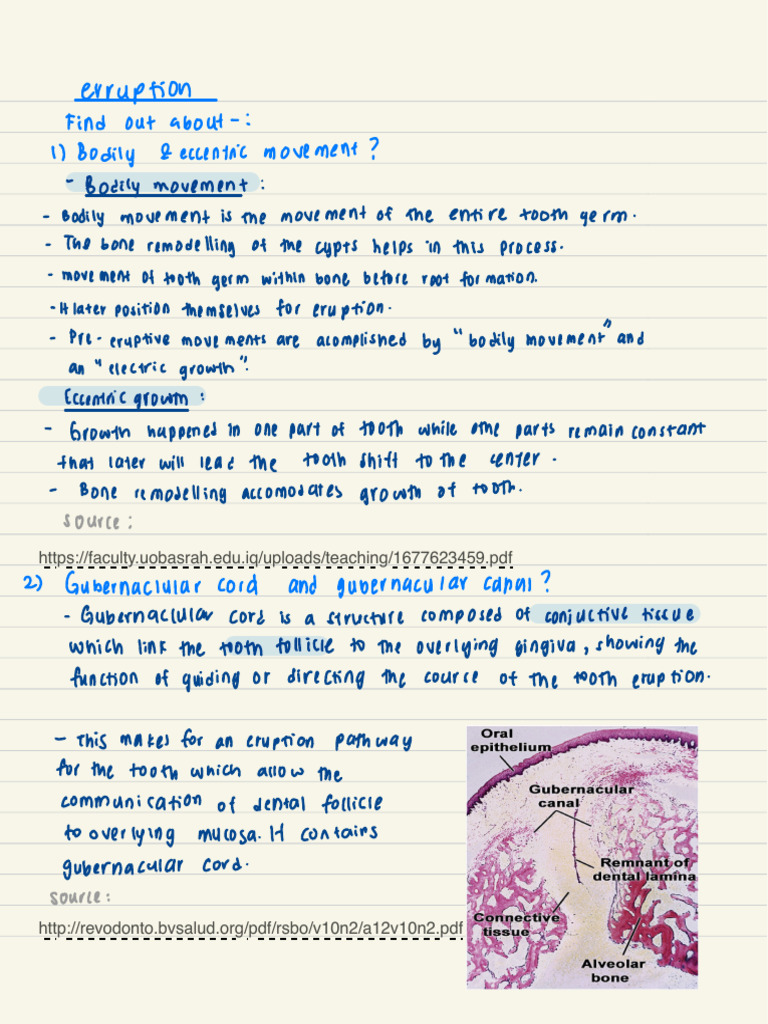 erruption
Find out about-:
1) Bodily & eccentric movement?
- Bodily movement:
- Bodily movement is the movement of the entire tooth germ.
- The bone remodelling of the cypts helps in this process.
- movement of tooth germ within bone before root formation.
- It later position themselves for eruption.
- Pre-eruptive movements are acomplished by "bodily movement" and
an "electric growth".
Eccentric growth:
- Growth happened in one part of tooth while othe parts remain constant
that later will lead the tooth shift to the center.
- Bone remodelling accomodates growth of tooth.
source:
https://faculty.uobasrah.edu.iq/uploads/teaching/1677623459.pdf
2) Gubernaclular cord and gubernacular canal?
- Gubernaclular cord is a structure composed of conjuctive tissue
which link the tooth follicle to the overlying gingiva, showing the
function of guiding or directing the cource of the tooth eruption.
- This makes for an eruption pathway
for the tooth which allow the
communication of dental follicle
to overlying mucosa. It contains
gubernacular cord.
source:
http://revodonto.bvsalud.org/pdf/rsbo/v10n2/a12v10n2.pdf
Oral
epithelium
Gubernacular
canal
Remnant of
dental lamina
Connective
tissue
Alveolar
bone